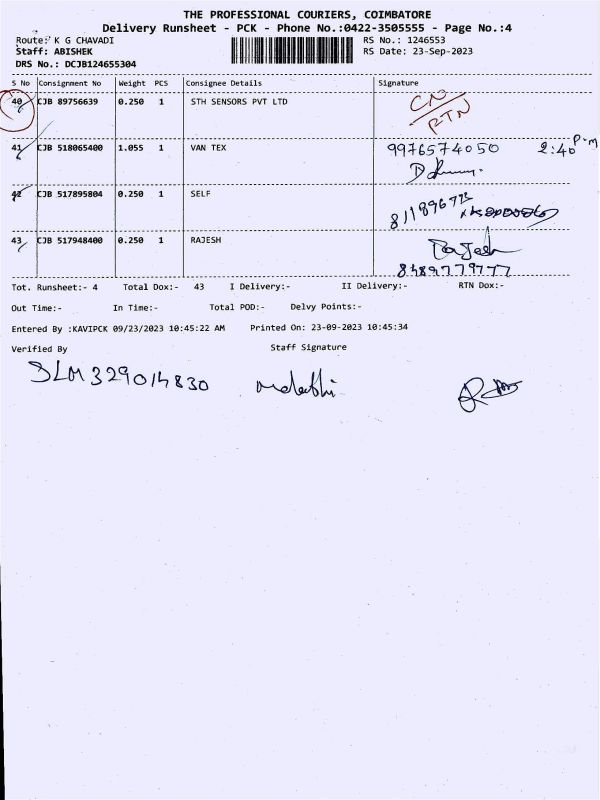 THE PROFESSIONAL COURIERS, COIMBATORE
Delivery Runsheet - PCK - Phone No.:0422-3505555 - Page No.:4
Route: K G CHAVADI RS No.: 1246553
Staff: ABISHEK RS Date: 23-Sep-2023
DRS No.: DCJB124655304
S No Consignment No Weight PCS Consignee Details Signature
40 CJB 89756639 0.250 1 STH SENSORS PVT LTD CN
RTN
41 CJB 518065400 1.055 1 VAN TEX 9976574050 2:40 P.m
42 CJB 517895804 0.250 1 SELF
43 CJB 517948400 0.250 1 RAJESH Rajesh
8489779777
Tot. Runsheet:- 4 Total Dox:- 43 I Delivery:- II Delivery:- RTN Dox:-
Out Time:- In Time:- Total POD:- Delvy Points:-
Entered By :KAVIPCK 09/23/2023 10:45:22 AM Printed On: 23-09-2023 10:45:34
Verified By Staff Signature
SLM329014830